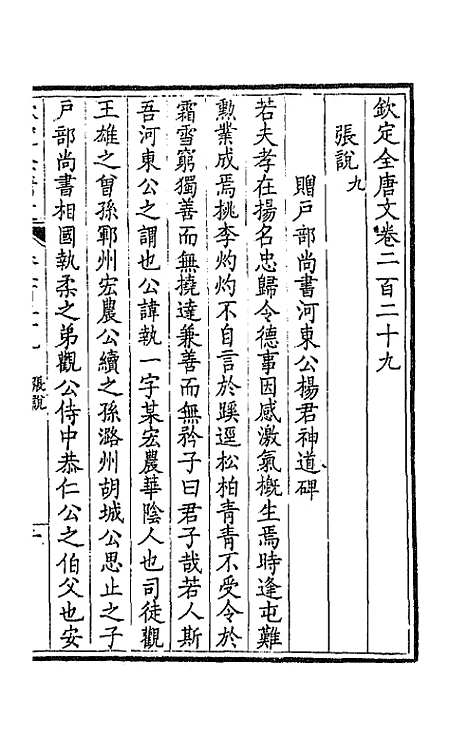 欽定全唐文卷二百二十九
張說九
贈戶部尚書河東公楊君神道碑
若夫孝在揚名忠歸令德事因感激氣槪生焉時逢屯難
勲業成焉桃李灼灼不自言於蹊逕松柏青青不受令於
霜雪窮獨善而無撓達兼善而無矜子曰君子哉若人斯
吾河東公之謂也公諱執一字某宏農華陰人也司徒觀
王雄之曾孫鄆州宏農公續之孫潞州胡城公思止之子
戶部尚書相國執柔之弟觀公侍中恭仁公之伯父也安
張說